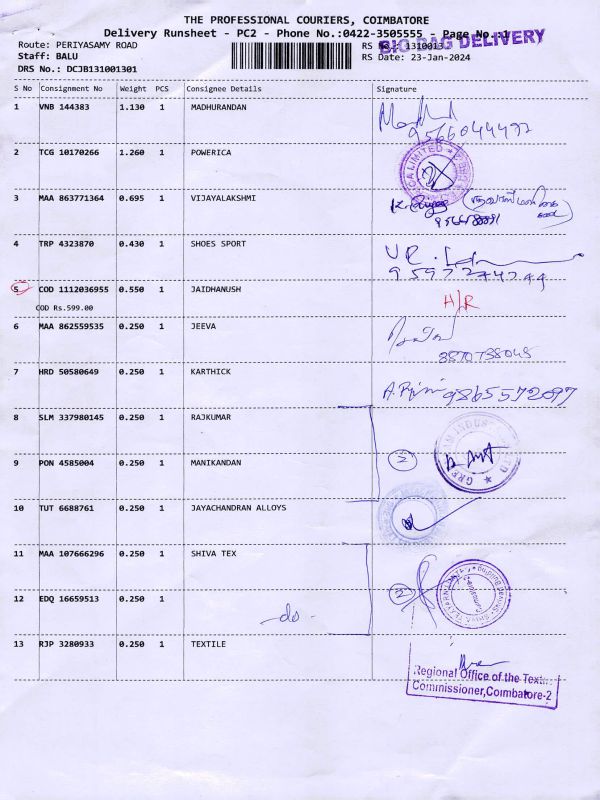 THE PROFESSIONAL COURIERS, COIMBATORE
Delivery Runsheet - PC2 - Phone No.:0422-3505555 - Page No.:1
BIG BAG DELIVERY
Route: PERIYASAMY ROAD
RS No.: 1310013
Staff: BALU
RS Date: 23-Jan-2024
DRS No.: DCJB131001301
S No Consignment No Weight PCS Consignee Details Signature
1 VNB 144383 1.130 1 MADHURANDAN
9566044492
2 TCG 10170266 1.260 1 POWERICA
3 MAA 863771364 0.695 1 VIJAYALAKSHMI
4 TRP 4323870 0.430 1 SHOES SPORT
5 COD 1112036955 0.550 1 JAIDHANUSH H/R
COD Rs.599.00
6 MAA 862559535 0.250 1 JEEVA
8870738048
7 HRD 50580649 0.250 1 KARTHICK
9865572097
8 SLM 337980145 0.250 1 RAJKUMAR
9 PON 4585004 0.250 1 MANIKANDAN 2
10 TUT 6688761 0.250 1 JAYACHANDRAN ALLOYS
11 MAA 107666296 0.250 1 SHIVA TEX
2
12 EDQ 16659513 0.250 1 -do-
13 RJP 3280933 0.250 1 TEXTILE
Regional Office of the Textile
Commissioner,Coimbatore-2